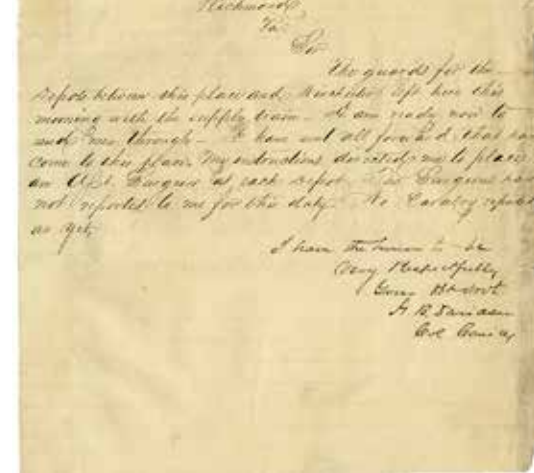 Richmond
Va
Sir
The guards for the
depots between this place and Winchester left here this
morning with the supply train. I am ready now to
send men through. I have sent all forward that have
come to this place. My instructions directed me to place
an Asst. Surgeon at each depot. Surgeons have
not reported to me for this duty. No Cavalry report
as yet.
I have the honor to be
Very Respectfully
Your Obt Svt
H. B. Davidson
Col Comdg